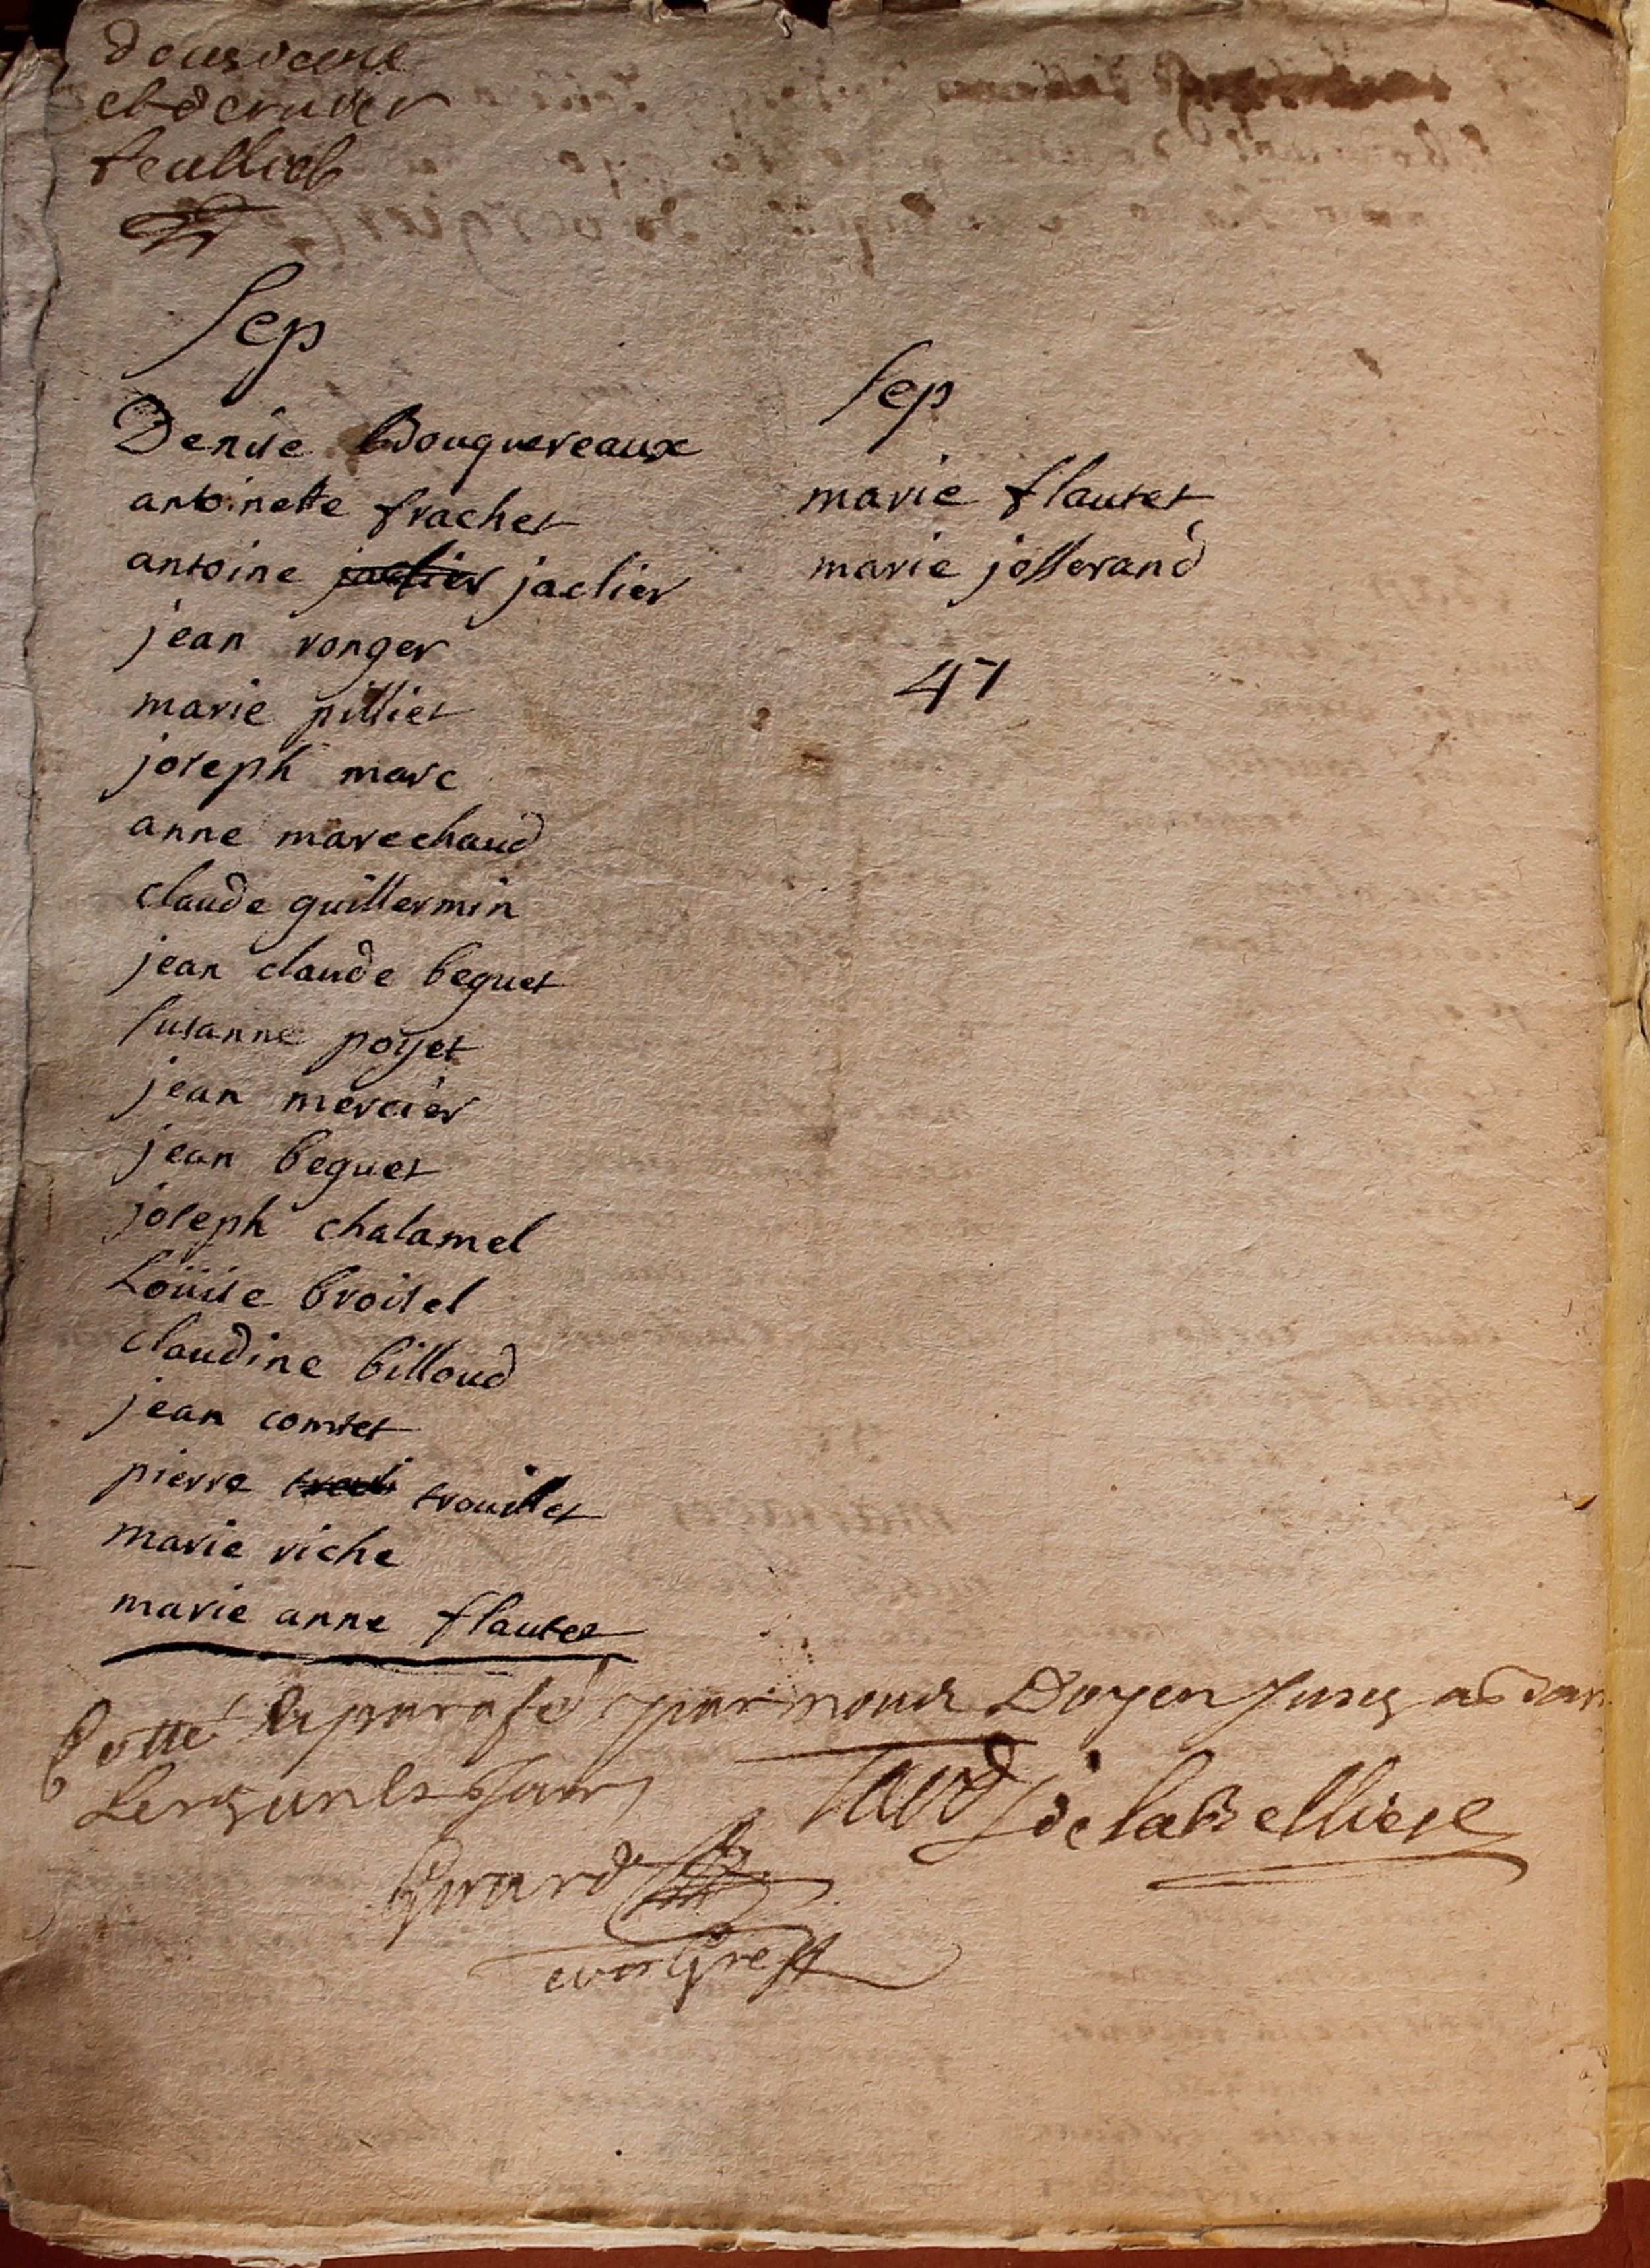 douzieme
et dernier
feuillet
Sep
Denise Bouquereaux
antoinette frachet
antoine jaclier jaclier
jean ronger
marie pilliet
joseph marc
anne marechaud
claude guillermin
jean claude beguet
Susanne poyet
jean mercier
jean beguet
joseph chalamel
Loüise broisel
claudine billoud
jean comtet
pierre trouillet
marie riche
marie anne flautet
Sep
marie flautet
marie josserand
47
Cotté et parafé par nous Doyen
Girard